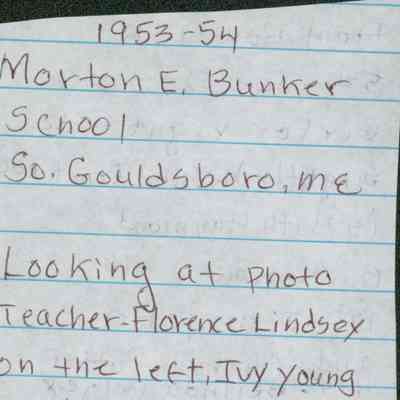 1953-54
Morton E. Bunker
School
So. Gouldsboro, me
Looking at photo
Teacher-Florence Lindsey
on the left, Ivy Young